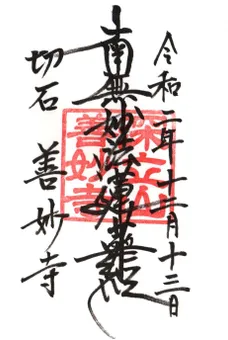 令和二年十二月十三日
南無妙法蓮華経
深立山
善妙寺
切石 善妙寺